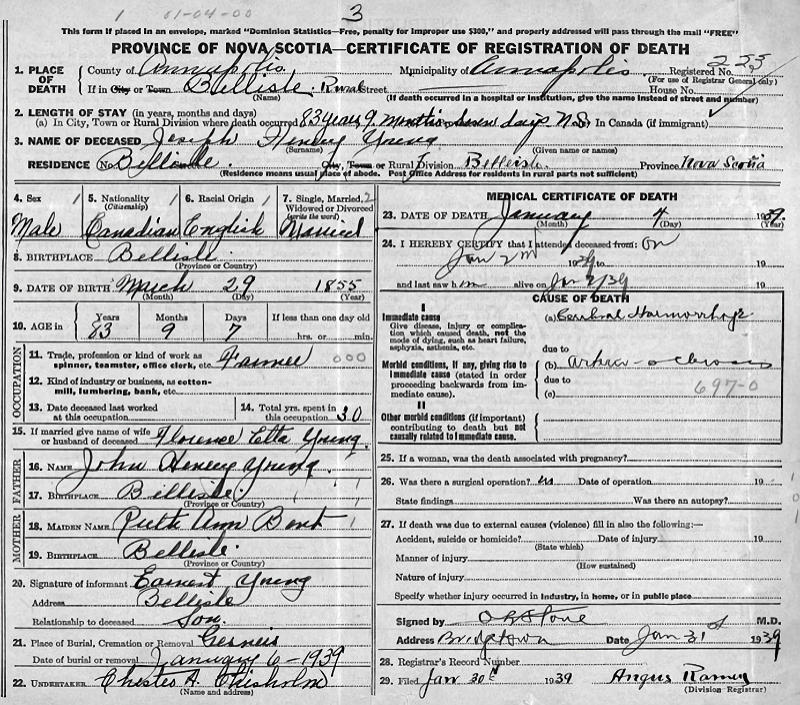 1 01-04-00 3
This form if placed in an envelope, marked "Dominion Statistics—Free, penalty for improper use $300," and properly addressed will pass through the mail "FREE"
PROVINCE OF NOVA SCOTIA—CERTIFICATE OF REGISTRATION OF DEATH
1. PLACE OF DEATH County of Annapolis Municipality of Annapolis. Registered No. 255
(For use of Registrar General only)
If in City or Town Bellisle: Rural Street House No.
(Name) (If death occurred in a hospital or institution, give the name instead of street and number)
2. LENGTH OF STAY (in years, months and days)
(a) In City, Town or Rural Division where death occurred 83 years, 9 months seven days N.S. In Canada (if immigrant)
3. NAME OF DECEASED Joseph Henery Young
(Surname) (Given name or names)
RESIDENCE (No. Bellisle. City, Town or Rural Division Belleisle. Province Nova Scotia
(Residence means usual place of abode. Post Office Address for residents in rural parts not sufficient)
4. Sex 1 5. Nationality 1 6. Racial Origin 1 7. Single, Married, 2
(Citizenship) Widowed or Divorced
(write the word)
Male Canadian English Married
8. BIRTHPLACE Bellisle
(Province or Country)
9. DATE OF BIRTH March 29 1855
(Month) (Day) (Year)
10. AGE in Years Months Days If less than one day old
83 9 7 hrs. or min.
OCCUPATION
11. Trade, profession or kind of work as
spinner, teamster, office clerk, etc. Farmer 000
12. Kind of industry or business, as cotton-
mill, lumbering, bank, etc.
13. Date deceased last worked
at this occupation
14. Total yrs. spent in
this occupation 30
15. If married give name of wife
or husband of deceased Florence Etta Young.
FATHER
16. NAME John Henery Young.
17. BIRTHPLACE Bellisle.
(Province or Country)
MOTHER
18. MAIDEN NAME Ruth Ann Bent
19. BIRTHPLACE Bellisle.
(Province or Country)
20. Signature of informant Earnest Young
Address Bellisle
Relationship to deceased Son.
21. Place of Burial, Cremation or Removal
Date of burial or removal January 6-1939
22. UNDERTAKER Chester A. Chisholm
(Name and address)
MEDICAL CERTIFICATE OF DEATH
23. DATE OF DEATH January 4 1939.
(Month) (Day) (Year)
24. I HEREBY CERTIFY that I attended deceased from: on
Jan 2nd 1939 to 19
and last saw h m alive on Jan 2/39 19
CAUSE OF DEATH
I
Immediate cause
Give disease, injury or complica-
tion which caused death, not the
mode of dying, such as heart failure,
asphyxia, asthenia, etc.
(a) Cerebral Haemorrhage
due to
Morbid conditions, if any, giving rise to
immediate cause (stated in order
proceeding backwards from im-
mediate cause).
(b) arterio-sclerosis
due to
(c) 697-0
II
Other morbid conditions (if important)
contributing to death but not
causally related to immediate cause.
25. If a woman, was the death associated with pregnancy?
26. Was there a surgical operation? no Date of operation 19
State findings Was there an autopsy?
27. If death was due to external causes (violence) fill in also the following:—
Accident, suicide or homicide? Date of injury 19
(State which)
Manner of injury
(How sustained)
Nature of injury
Specify whether injury occurred in industry, in home, or in public place
Signed by Stone M.D.
Address Bridgetown Date Jan 31 1939
28. Registrar's Record Number
29. Filed Jan 30th 1939 Angus Ramey
(Division Registrar)